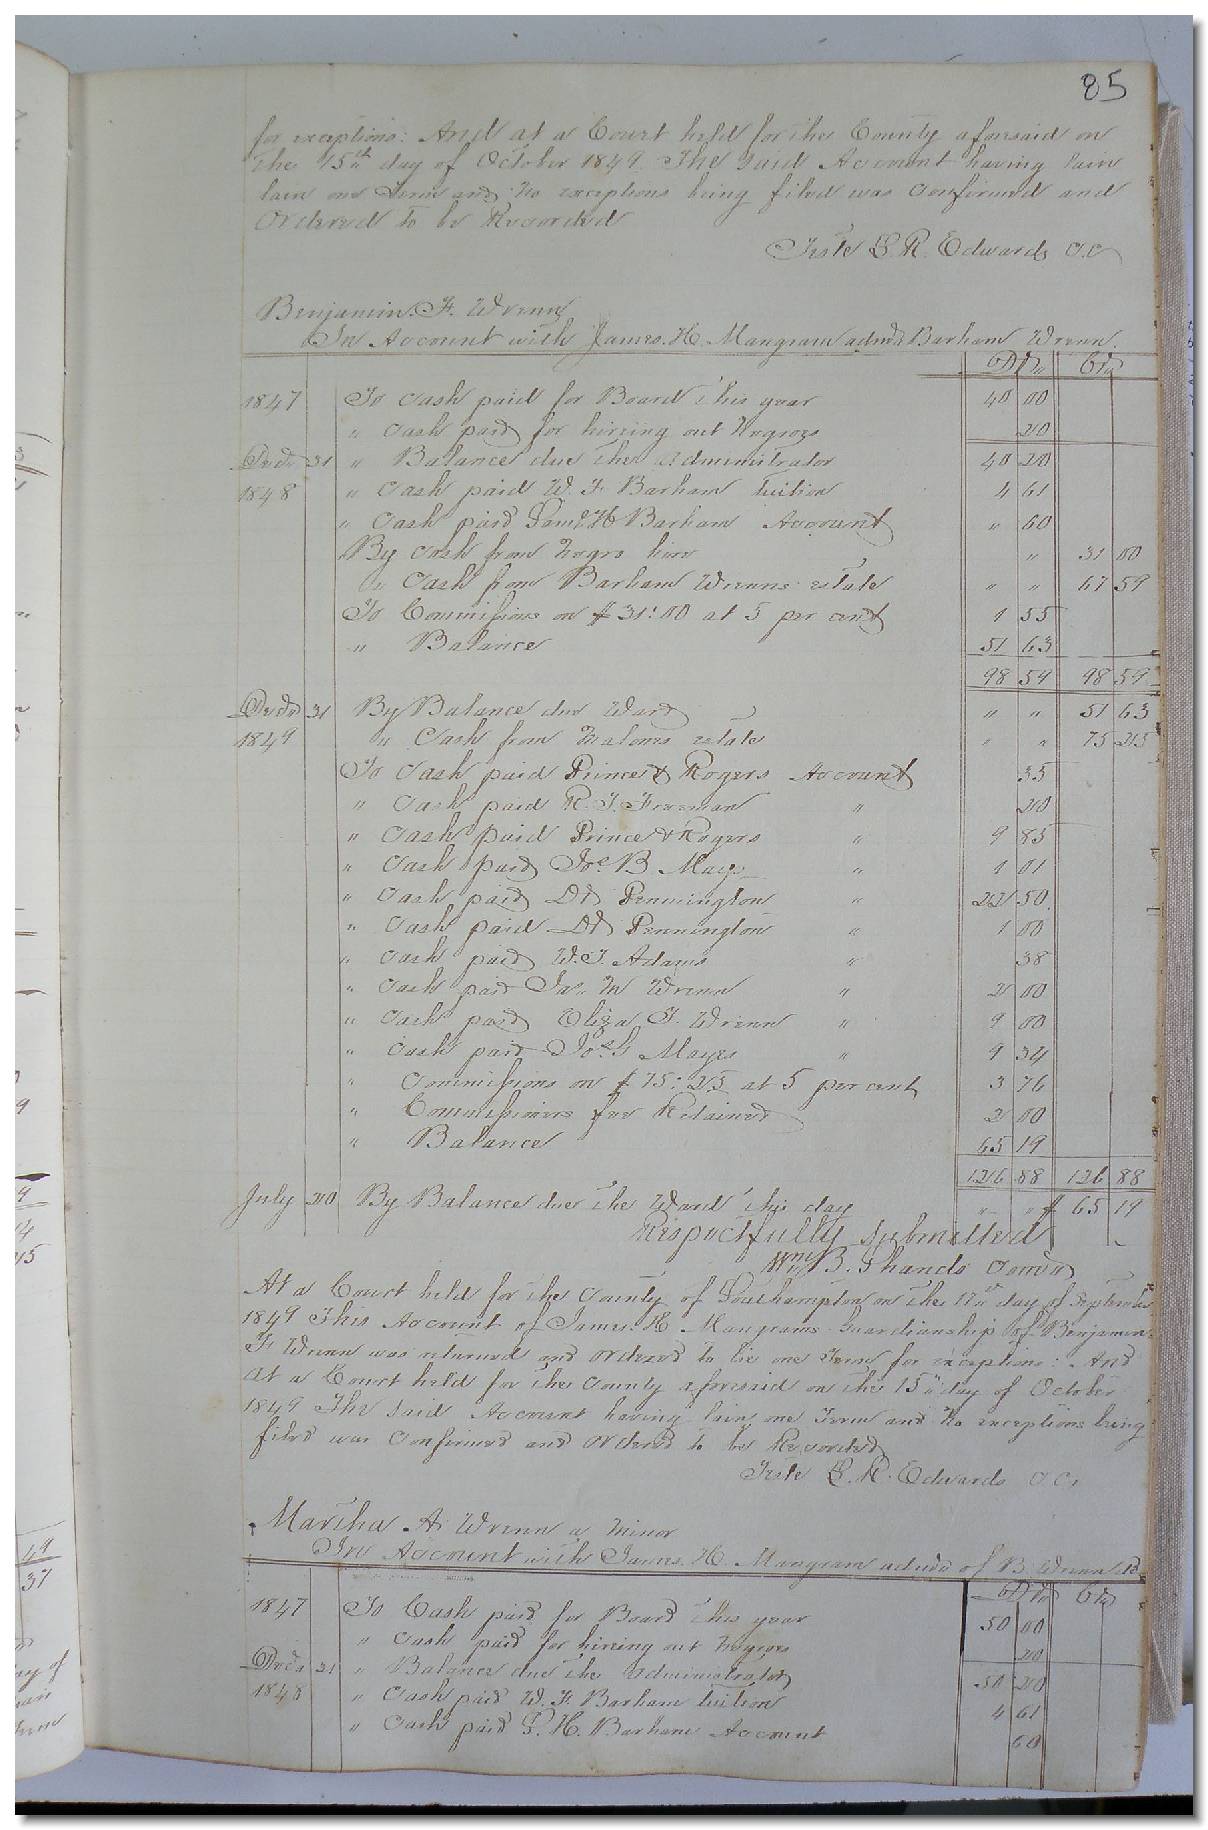 85
for exceptions: And at a Court held for the County aforesaid on
the 15th day of October 1849 The said Account having lain
lain one Term and No exceptions being filed was Confirmed and
Ordered to be Recorded
Teste L. R. Edwards C.C
Benjamin. F. Wrenn
In Account with James. H. Mangram admr Barham Wrenn.
Dr Cr
1847 To Cash paid for Board this year 40 00
" Cash paid for hirring out Negroes 20
Decr 31 " Balance due the Administrator 40 20
1848 " Cash paid W. F. Barham Tuition 4 61
" Cash paid Saml H Barham Account " 60
By Cash from Negro hire " 31 00
" Cash from Barham Wrenns estate " " 67 59
To Commissions on $31:00 at 5 per cent 1 55
" Balance 51 63
98 59 98 59
Decr 31 By Balance due Ward " " 51 63
1849 " Cash from Malones estate " " 75 25
To Cash paid Prince & Rogers Account 35
" Cash paid R. T. Foreman " 20
" Cash paid Prince & Rogers " 9 85
" Cash paid Jos. B. May " 1 01
" Cash paid Dr Pennington " 22 50
" Cash paid Dr Pennington " 1 00
" Cash paid W. T. Adams " 38
" Cash paid Jas. M Wrenn " 2 00
" Cash paid Eliza T. Wrenn " 9 00
" Cash paid Jos. G Mayes " 9 34
" Commissions on $75:25 at 5 per cent 3 76
" Commissioners fee Retained 2 00
" Balance 65 19
126 88 126 88
July 20 By Balance due the Ward this day " " $ 65 19
Respectfully submitted
Wm B. Shands Comr
At a Court held for the County of Southampton on the 17th day of September
1849 This Account of James. H Mangrams Guardianship of Benjamin.
F Wrenn was returned and ordered to lie one Term for exceptions: And
At a Court held for the County aforesaid on the 15th day of October
1849 The said Account having lain one Term and No exceptions being
filed was Confirmed and Ordered to be Recorded
Teste L. R. Edwards C C.
Martha A. Wrenn a Minor
In Account with James. H. Mangram admr of B. Wrenn
Dr Cr
1847 To Cash paid for Board this year 50 00
" Cash paid for hirring out Negroes 20
Decr 31 " Balance due the Administrator 50 20
1848 " Cash paid W. F. Barham Tuition 4 61
" Cash paid S. H. Barham Account 60